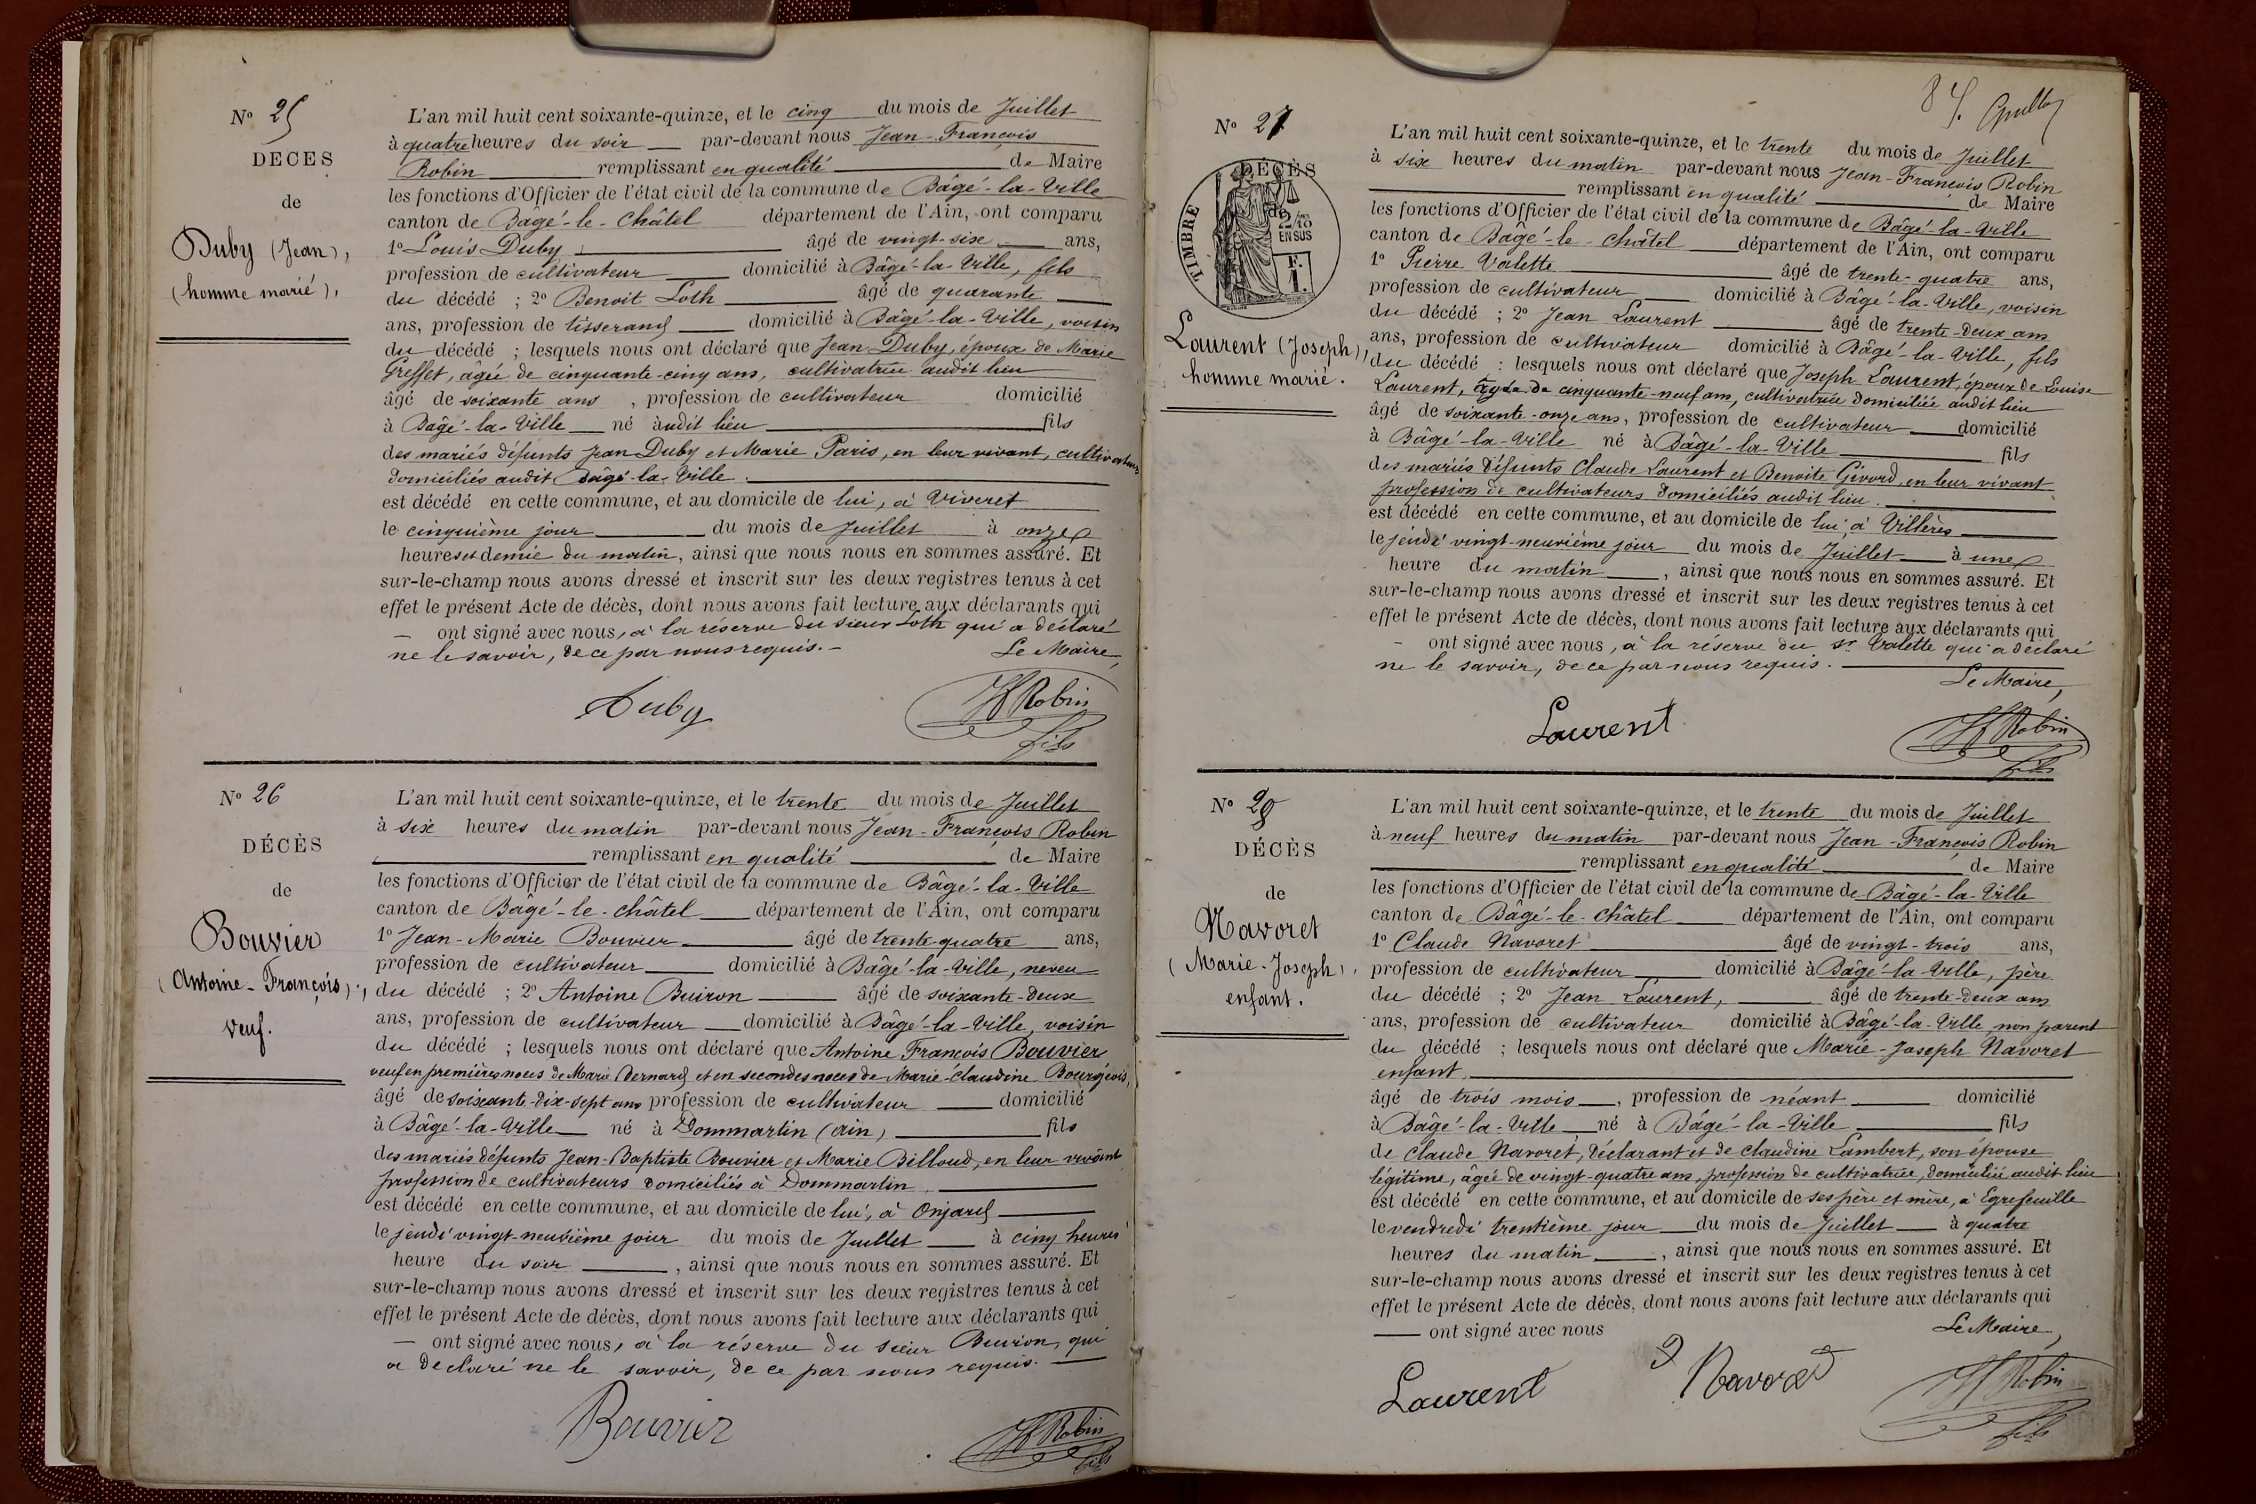 Nº 25
DECES
de
Duby (Jean),
(homme marié),
L'an mil huit cent soixante-quinze, et le cinq du mois de Juillet
à quatre heures du soir par-devant nous Jean-François
Robin remplissant en qualité de Maire
les fonctions d'Officier de l'état civil de la commune de Bâgé-la-Ville
canton de Bâgé-le-Châtel département de l'Ain, ont comparu
1º Louis Duby âgé de vingt-six ans,
profession de cultivateur domicilié à Bâgé-la-Ville, fils
du décédé ; 2º Benoit Loth âgé de quarante
ans, profession de tisserand domicilié à Bâgé-la-Ville, voisin
du décédé ; lesquels nous ont déclaré que Jean Duby, époux de Marie
Greffet, agée de cinquante-cinq ans, cultivatrice audit lieu
âgé de soixante ans, profession de cultivateur domicilié
à Bâgé-la-Ville né audit lieu fils
des mariés défunts Jean Duby et Marie Paris, en leur vivant, cultivateurs
domiciliés audit Bâgé-la-Ville.
est décédé en cette commune, et au domicile de lui, à Viveret
le cinquième jour du mois de Juillet à onze
heures et demie du matin, ainsi que nous nous en sommes assuré. Et
sur-le-champ nous avons dressé et inscrit sur les deux registres tenus à cet
effet le présent Acte de décès, dont nous avons fait lecture aux déclarants qui
— ont signé avec nous, à la réserve du sieur Loth qui a déclaré
ne le savoir, de ce par nous requis. — Le Maire,
Duby
JF Robin
fils
Nº 26
DÉCÈS
de
Bouvier
(Antoine-François),
Veuf.
L'an mil huit cent soixante-quinze, et le trente du mois de Juillet
à six heures du matin par-devant nous Jean-François Robin
remplissant en qualité de Maire
les fonctions d'Officier de l'état civil de la commune de Bâgé-la-Ville
canton de Bâgé-le-Châtel département de l'Ain, ont comparu
1º Jean-Marie Bouvier âgé de trente-quatre ans,
profession de cultivateur domicilié à Bâgé-la-Ville, neveu
du décédé ; 2º Antoine Buiron âgé de soixante-deux
ans, profession de cultivateur domicilié à Bâgé-la-Ville, voisin
du décédé ; lesquels nous ont déclaré que Antoine François Bouvier
veuf en premières noces de Marie Bernard et en secondes noces de Marie-Claudine Bourgeois,
âgé de soixante-dix-sept ans profession de cultivateur domicilié
à Bâgé-la-Ville né à Dommartin (Ain) fils
des mariés défunts Jean-Baptiste Bouvier et Marie Billoud, en leur vivant
profession de cultivateurs domiciliés à Dommartin,
est décédé en cette commune, et au domicile de lui, à Onjard
le jeudi vingt-neuvième jour du mois de Juillet à cinq heures
heure du soir, ainsi que nous nous en sommes assuré. Et
sur-le-champ nous avons dressé et inscrit sur les deux registres tenus à cet
effet le présent Acte de décès, dont nous avons fait lecture aux déclarants qui
— ont signé avec nous, à la réserve du sieur Buiron, qui
a déclaré ne le savoir, de ce par nous requis. —
Bouvier
JF Robin
fils
84.
Nº 27
DÉCÈS
de
TIMBRE
2/10
EN SUS
F.
1.
Laurent (Joseph),
homme marié.
L'an mil huit cent soixante-quinze, et le trente du mois de Juillet
à six heures du matin par-devant nous Jean-François Robin
remplissant en qualité de Maire
les fonctions d'Officier de l'état civil de la commune de Bâgé-la-Ville
canton de Bâgé-le-Châtel département de l'Ain, ont comparu
1º Pierre Valette âgé de trente-quatre ans,
profession de cultivateur domicilié à Bâgé-la-Ville, voisin
du décédé ; 2º Jean Laurent âgé de trente-deux ans
ans, profession de cultivateur domicilié à Bâgé-la-Ville, fils
du décédé : lesquels nous ont déclaré que Joseph Laurent, époux de Louise
Laurent, âgée de cinquante-neuf ans, cultivatrice domiciliée audit lieu
âgé de soixante-onze ans, profession de cultivateur domicilié
à Bâgé-la-Ville né à Bâgé-la-Ville fils
des mariés défunts Claude Laurent et Benoite Givord en leur vivant
profession de cultivateurs domiciliés audit lieu.
est décédé en cette commune, et au domicile de lui, à Villères
le jeudi vingt-neuvième jour du mois de Juillet à une
heure du matin, ainsi que nous nous en sommes assuré. Et
sur-le-champ nous avons dressé et inscrit sur les deux registres tenus à cet
effet le présent Acte de décès, dont nous avons fait lecture aux déclarants qui
— ont signé avec nous, à la réserve du Sr Valette qui a déclaré
ne le savoir, de ce par nous requis.
Le Maire,
Laurent
JF Robin
fils
Nº 28
DÉCÈS
de
Navoret
(Marie-Joseph),
enfant.
L'an mil huit cent soixante-quinze, et le trente du mois de Juillet
à neuf heures du matin par-devant nous Jean-François Robin
remplissant en qualité de Maire
les fonctions d'Officier de l'état civil de la commune de Bâgé-la-Ville
canton de Bâgé-le-Châtel département de l'Ain, ont comparu
1º Claude Navoret âgé de vingt-trois ans,
profession de cultivateur domicilié à Bâgé-la-Ville, père
du décédé ; 2º Jean Laurent, âgé de trente-deux ans
ans, profession de cultivateur domicilié à Bâgé-la-Ville non parent
du décédé ; lesquels nous ont déclaré que Marie-Joseph Navoret
enfant
âgé de trois mois, profession de néant domicilié
à Bâgé-la-Ville né à Bâgé-la-Ville fils
de Claude Navoret, déclarant et de Claudine Lambert, son épouse
légitime, âgée de vingt-quatre ans, profession de cultivatrice, domiciliée audit lieu
est décédé en cette commune, et au domicile de ses père et mère, à Egrefeuille
le vendredi trentième jour du mois de Juillet à quatre
heures du matin, ainsi que nous nous en sommes assuré. Et
sur-le-champ nous avons dressé et inscrit sur les deux registres tenus à cet
effet le présent Acte de décès, dont nous avons fait lecture aux déclarants qui
— ont signé avec nous Le Maire,
Laurent
Navoret
JF Robin
fils